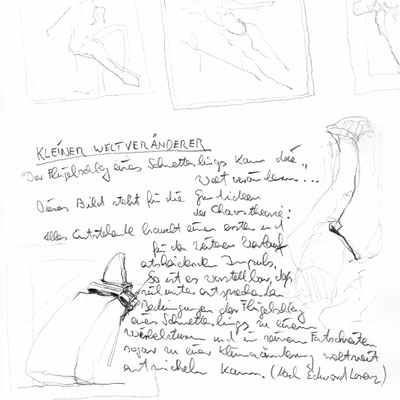 KLEINER WELTVERÄNDERER
"Der Flügelschlag eines Schmetterlings kann die"
Welt verändern...
Dieses Bild steht für die Grundideen
der Chaostheorie:
Alles Entstehende braucht einen ersten und
für den weiteren Verlauf
entscheidenden Impuls.
So ist es vorstellbar, daß
sich unter entsprechenden
Bedingungen der Flügelschlag
eines Schmetterlings zu einem
Wirbelsturm und in seinem Fortschreiten
sogar zu einer Klimaänderung weltweit
entwickeln kann. (Nach Edward Lorenz)